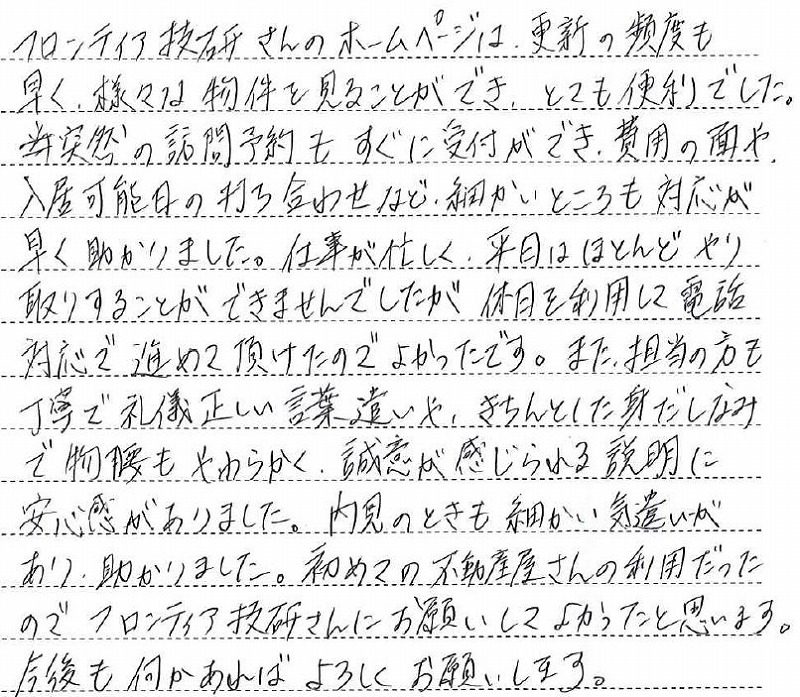 フロンティア技研さんのホームページは、更新の頻度も
早く、様々な物件を見ることができ、とても便利でした。
突然の訪問予約もすぐに受付ができ、費用の面や、
入居可能日の打ち合わせなど、細かいところも対応が
早く助かりました。仕事が忙しく、平日はほとんどやり
取りすることができませんでしたが休日を利用して電話
対応で進めて頂けたのでよかったです。また、担当の方も
丁寧で礼儀正しい言葉遣いや、きちんとした身だしなみ
で物腰もやわらかく、誠意が感じられる説明に
安心感がありました。内見のときも細かい気遣いが
あり、助かりました。初めての不動産屋さんの利用だった
のでフロンティア技研さんにお願いしてよかったと思います。
今後も何かあればよろしくお願いします。